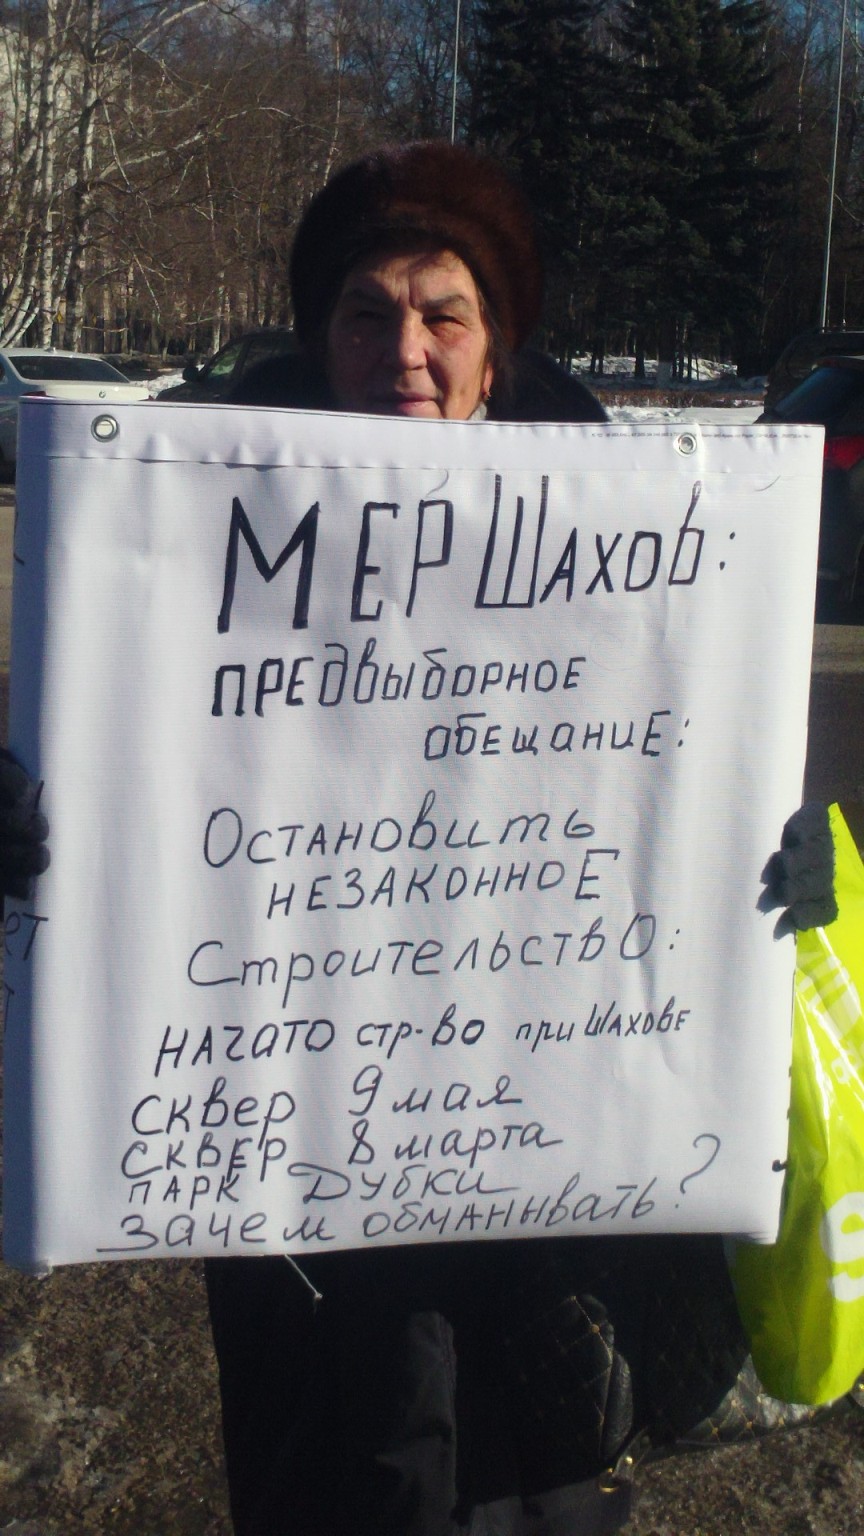 МЕР ШАХОВ:
ПРЕДВЫБОРНОЕ
ОБЕЩАНИЕ:
ОСТАНОВИТЬ
НЕЗАКОННОЕ
СТРОИТЕЛЬСТВО:
НАЧАТО стр-во при ШАХОВЕ
СКВЕР 9 мая
СКВЕР 8 марта
ПАРК ДУБКИ
Зачем обманывать?